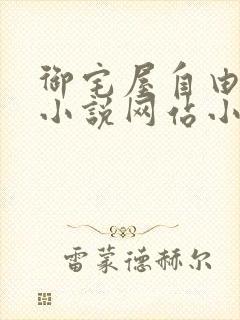 御宅屋自由
小说网佔小
雷蒙德赫尔